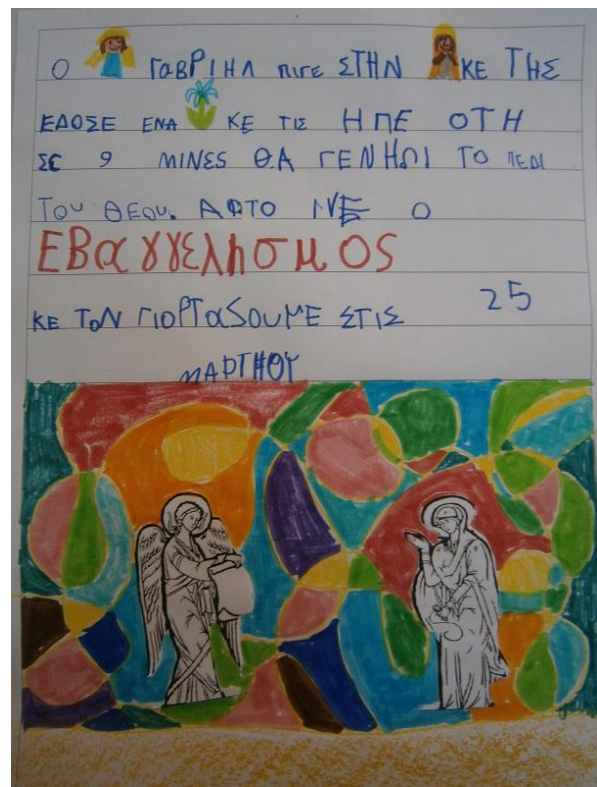 Ο ΓαΒΡΙΗΛ ΠΙΓΕ ΣΤΗΝ ΚΕ ΤΗΣ
ΕΔΟΣΕ ΕΝΑ ΚΕ ΤΙΣ ΗΠΕ ΟΤΗ
ΣΕ 9 ΜΙΝΕΣ ΘΑ ΓΕΝΗΘΙ ΤΟ ΠΕΔΙ
ΤΟυ ΘΕΟυ. ΑΦΤΟ ΙΝΕ Ο
ΕΒαγγελησμος
ΚΕ ΤΟΝ ΓΙΟΡΤαΣΟυΜΕ ΣΤΙΣ 25
ΜΑΡΤΗΟΥ